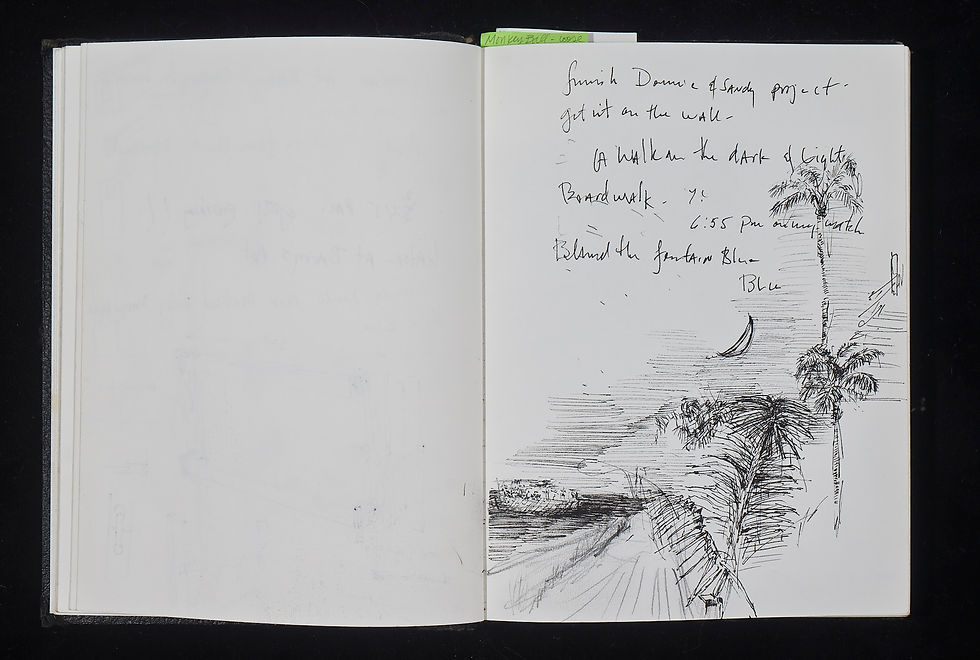 Monkey Bell - loose
finish Donnie & Sandy project -
get it on the wall -
(A walk in the dark & Light
Boardwalk -
6:55 pm on my watch
Behind the fontain Blue
Blue